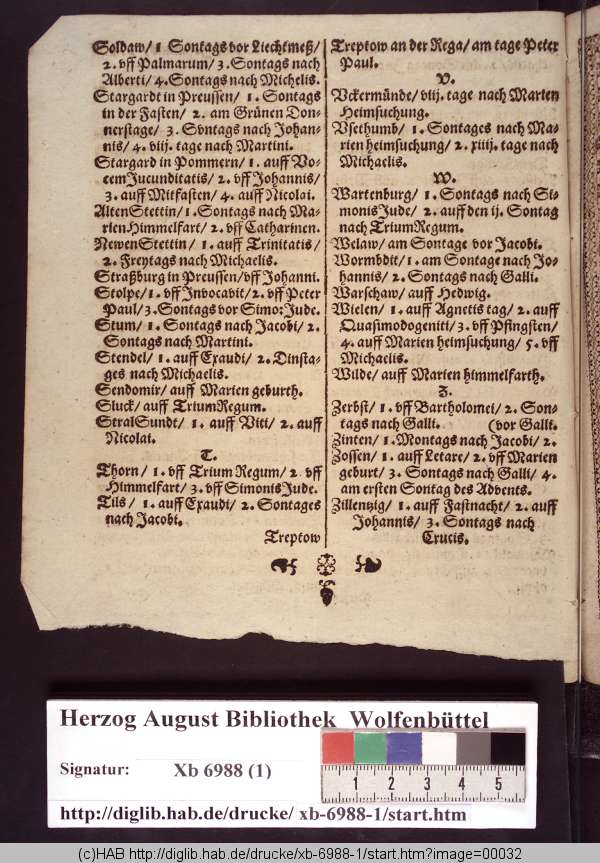 Soldaw/ 1 Sontags vor Liechtmeß/
2. vff Palmarum/ 3. Sontags nach
Alberti/ 4. Sontags nach Michelis.
Stargardt in Preussen/ 1. Sontags
in der Fasten/ 2. am Grünen Don-
nerstage/ 3. Svntags nach Johan-
nis/ 4. viij. tage nach Martini.
Stargard in Pommern/ 1. auff Vo-
cem Jucunditatis/ 2. vff Johannis/
3. auff Mitfasten/ 4. auff Nicolai.
AltenStettin/ 1. Sontags nach Ma-
rien Himmelfart/ 2. vff Catharinen.
NewenStettin/ 1. auff Trinitatis/
2. Freytags nach Michaelis.
Straßburg in Preussen/ vff Johanni.
Stolpe/ 1. vff Invocavit/ 2. vff Peter
Paul/ 3. Sontags vor Simo: Jude.
Stum/ 1. Sontags nach Jacobi/ 2.
Sontags nach Martini.
Stendel/ 1. auff Exaudi/ 2. Dinsta-
ges nach Michaelis.
Sendomir/ auff Marien geburth.
Sluck/ auff TriumRegum.
StralSundt/ 1. auff Viti/ 2. auff
Nicolai.
T.
Thorn/ 1. vff Trium Regum/ 2. vff
Himmelfart/ 3. vff Simonis Jude.
Tils/ 1. auff Exaudi/ 2. Sontages
nach Jacobi.
Treptow
Treptow an der Rega/ am tage Peter
Paul.
V.
Vckermünde/ viij. tage nach Marien
Heimsuchung.
Vsethumb/ 1. Sontages nach Ma-
rien heimsuchung/ 2. xiiij. tage nach
Michaelis.
W.
Wartenburg/ 1. Sontags nach Si-
monis Jude/ 2. auff den ij. Sontag
nach TriumRegum.
Welaw/ am Sontage vor Jacobi.
Wormbdit/ 1. am Sontage nach Jo-
hannis/ 2. Sontags nach Galli.
Warschaw/ auff Hedwig.
Wielen/ 1. auff Agnetis tag/ 2. auff
Quasimodogeniti/ 3. vff Pfingsten/
4. auff Marien heimsuchung/ 5. vff
Michaelis.
Wilde/ auff Marien himmelfarth.
Z.
Zerbst/ 1. vff Bartholomei/ 2. Son-
tags nach Galli. (vor Galli.
Zinten/ 1. Montags nach Jacobi/ 2.
Zossen/ 1. auff Letare/ 2. vff Marien
geburt/ 3. Sontags nach Galli/ 4.
am ersten Sontag des Advents.
Zillenzig/ 1. auff Fastnacht/ 2. auff
Johannis/ 3. Sontags nach
Crucis.
Herzog August Bibliothek Wolfenbüttel
Signatur: Xb 6988 (1)
1 2 3 4 5
http://diglib.hab.de/drucke/ xb-6988-1/start.htm
(c)HAB http://diglib.hab.de/drucke/xb-6988-1/start.htm?image=00032